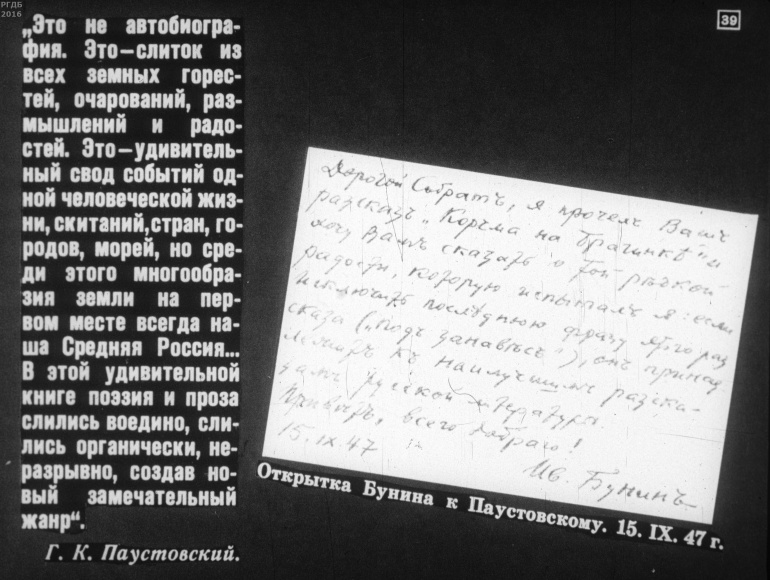 РГДБ
2016
39
„Это не автобиогра-
фия. Это—слиток из
всех земных горес-
тей, очарований, раз-
мышлений и радо-
стей. Это—удивитель-
ный свод событий од-
ной человеческой жиз-
ни, скитаний,стран, го-
родов, морей, но сре-
ди этого многообра-
зия земли на пер-
вом месте всегда на-
ша Средняя Россия...
В этой удивительной
книге поэзия и проза
слились воедино, сли-
лись органически, не-
разрывно, создав но-
вый замечательный
жанр“.
Г. К. Паустовский.
Дорогой Собратъ, я прочелъ Вашъ
разсказъ „Корчма на Брагинкѣ“ и
хочу Вамъ сказать о той рѣдкой
радости, которую испыталъ я: если
исключить послѣднюю фразу этого раз
сказа („подъ занавѣсъ“), онъ принад
лежитъ къ наилучшимъ разска-
замъ русской литературы.
Привѣтъ, всего добраго!
15.IX.47
Ив. Бунинъ
Открытка Бунина к Паустовскому. 15. IX. 47 г.